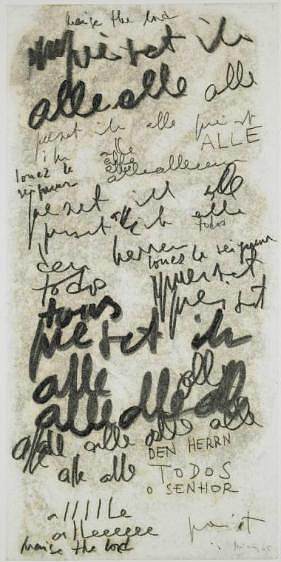 praise the lord
preiset ihn
alle alle alle
preiset ihn alle preiset
ihn alle ALLE
alle
louez le alle alleeeeee
seigneur
preiset ihn alle
preiset ihn alle
todos
herren
louez le seigneur
todos preiset
tous preiset
preiset ihn
alle alle
alle alle alle
alle alle alle alle
DEN HERRN
alle alle
TODOS
O SENHOR
alllllle
alleeeeee
praise the lord